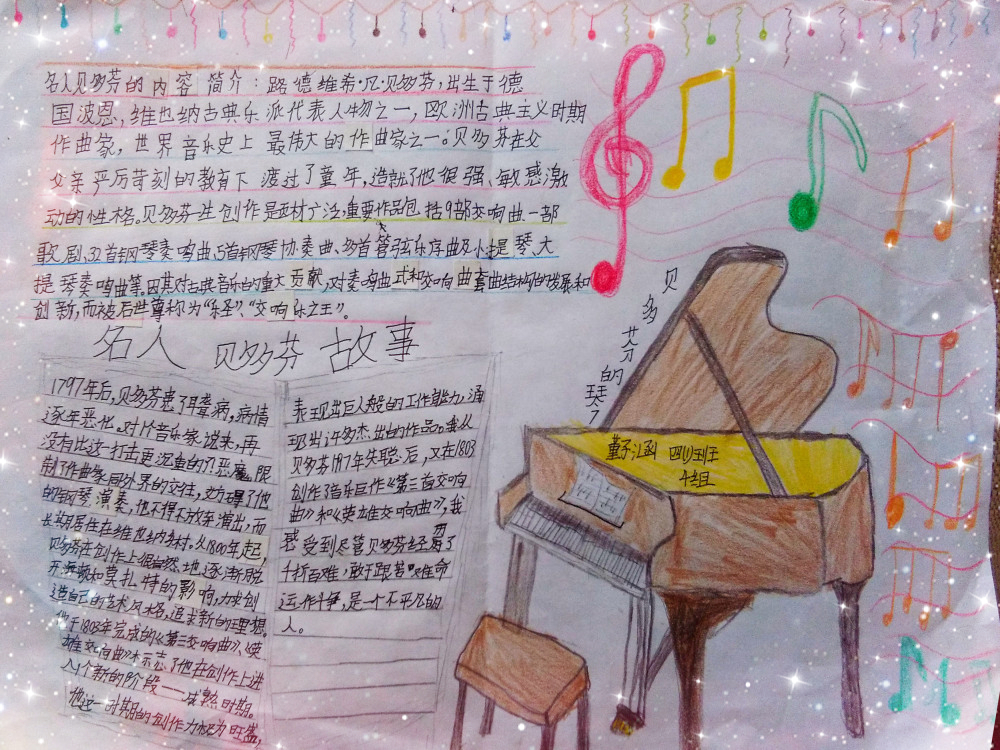 名人贝多芬的内容简介：路德维希·凡·贝多芬，出生于德
国波恩，维也纳古典乐派代表人物之一，欧洲古典主义时期
作曲家，世界音乐史上最伟大的作曲家之一。贝多芬在父
父亲严厉苛刻的教育下渡过了童年，造就了他倔强、敏感激
动的性格。贝多芬一生创作题材广泛，重要作品包括9部交响曲、一部
歌剧、32首钢琴奏鸣曲、5首钢琴协奏曲、多首管弦乐序曲及小提琴、大
提琴奏鸣曲等。因其对古典音乐的重大贡献，对奏鸣曲式和交响曲套曲结构的发展和
创新，而被后世尊称为“乐圣”、“交响乐之王”。
名人贝多芬故事
1797年后，贝多芬患了耳聋病，病情
逐年恶化。对1个音乐家说来，再
没有比这一打击更沉重的了！恶魔限
制了作曲家同外界的交往，妨碍了他
的钢琴演奏，他不得不放弃演出，而
长期居住在维也纳乡村。从1800年起，
贝多芬在创作上很自然地逐渐脱
开海顿和莫扎特的影响，力求创
造自己的艺术风格，追求新的理想。
他于1803年完成的《第三交响曲》、《英
雄交响曲》标志了他在创作上进
入1个新的阶段——成熟时期。
他这一时期的创作力极为旺盛，
表现出巨人般的工作能力，涌
现出许多杰出的作品。我从
贝多芬197年失聪后，又在1803
创作了音乐巨作《第三首交响
曲》和《英雄交响曲》，我
感受到尽管贝多芬经历了
千折百难，敢于跟苦难命
运作斗争，是一个不平凡的
人。
贝多芬的琴
董子涵 四(1)班
4组